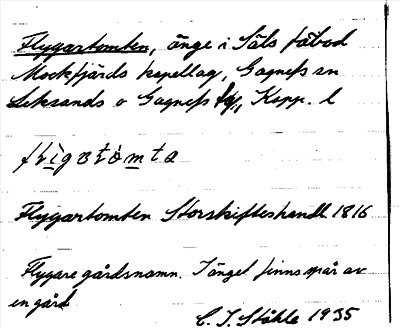 Flygartomten, änge i Säls fäbod
Mockfjärds kapellag, Gagnefs sn
Leksands o Gagnefs tg, Kopp. l
Flygartomten Storskifteshandl 1816
Flygare gårdsnamn. I änget finns spår av
en gård
C. I. Ståhle 1935